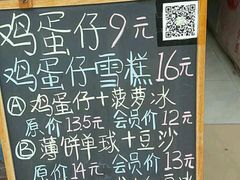 鸡蛋仔9元
鸡蛋仔雪糕16元
Ⓐ鸡蛋仔+菠萝冰
原价13.5元 会员价12元
Ⓑ薄饼单球+豆沙
原价14元 会员价13元